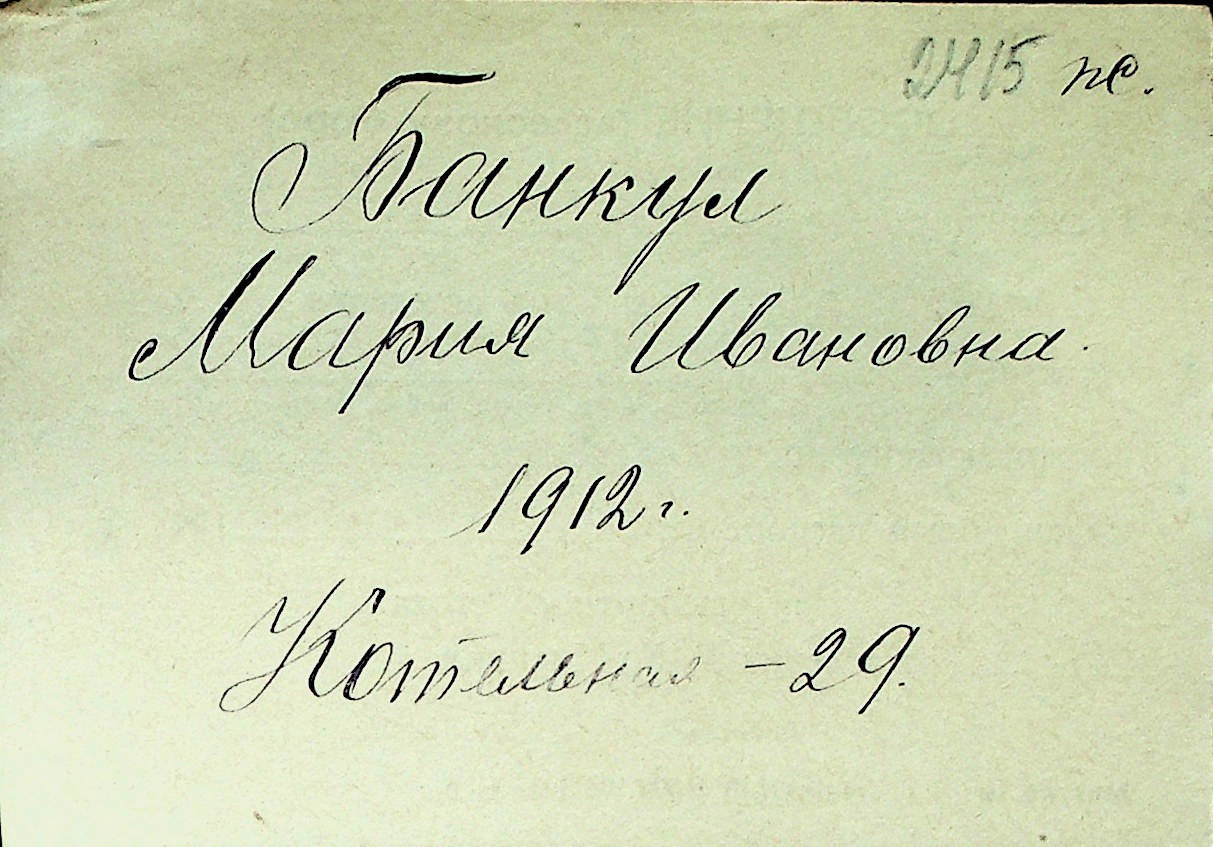 2415 пс.
Банкул
Мария Ивановна.
1912 г.
Котельная – 29.